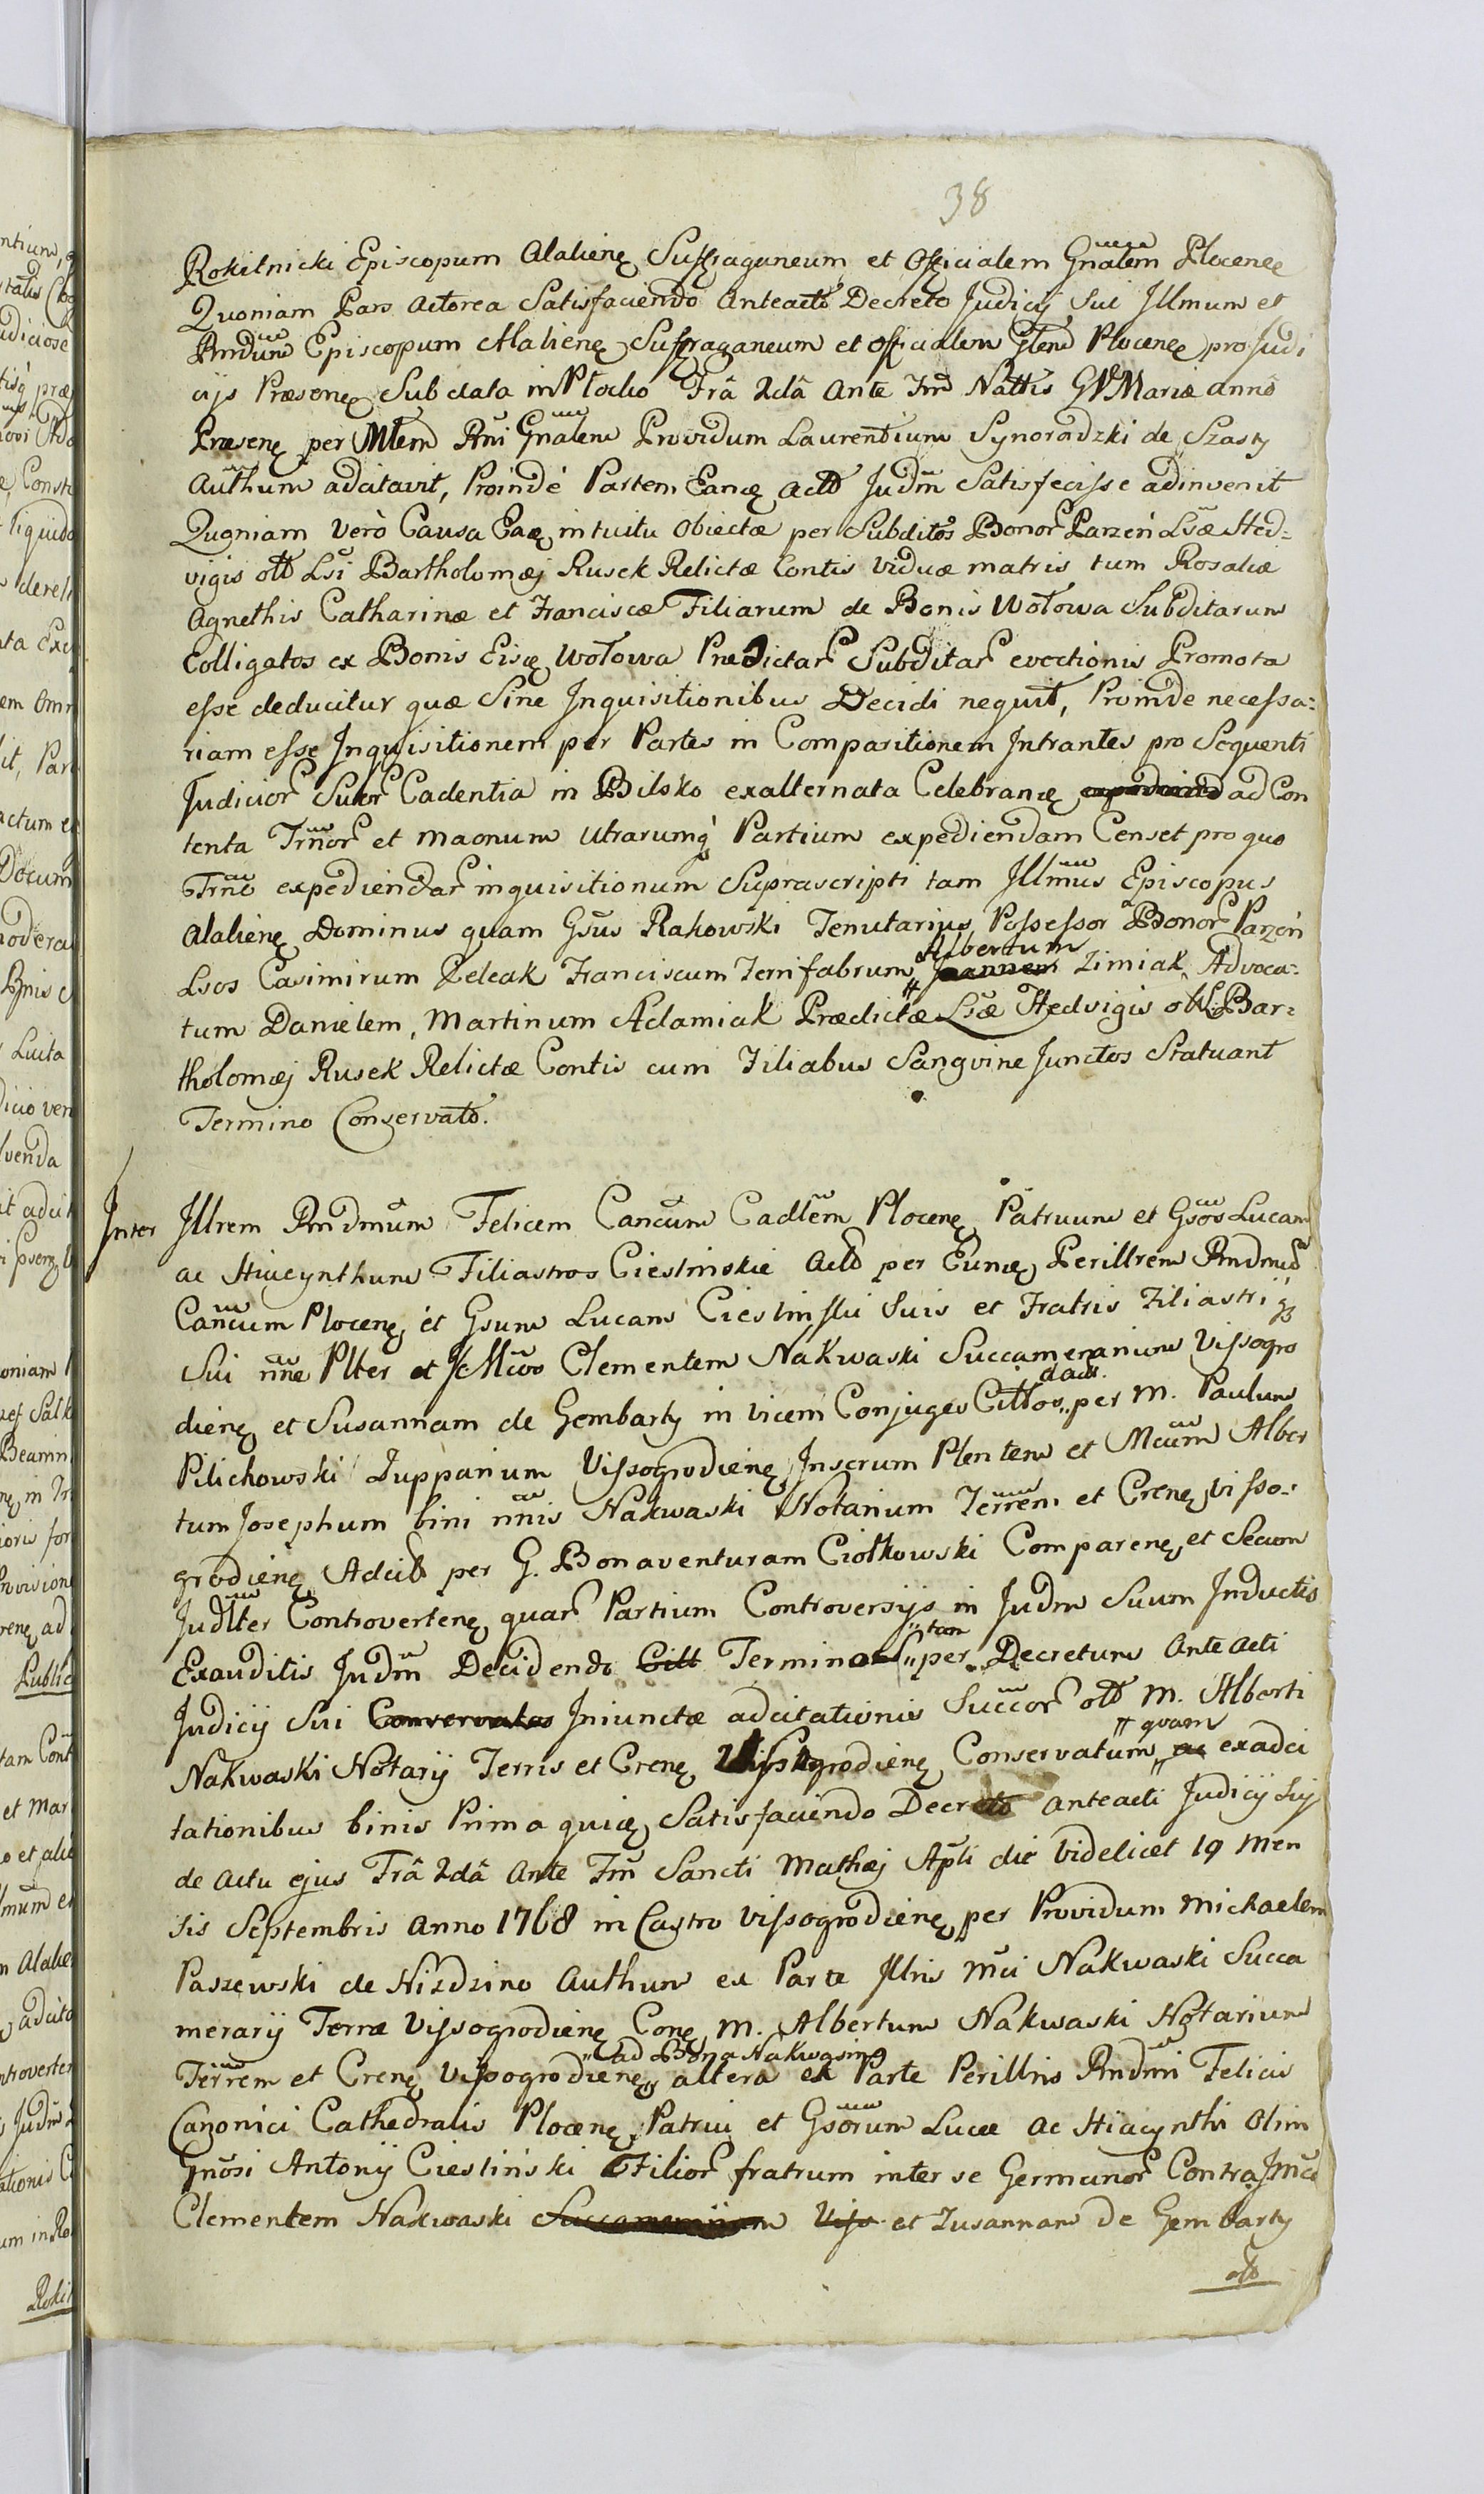 38
Rokitnicki Episcopum Alalienę Suffraganeum et Officialem Gnãlem Plocenę
Quoniam Pars Actorea Satisfaciendo Anteacto Decreto Judicij Sui Jllmum et
Rndum Episcopum Alalienę Suffraganeum et Officialem Glem Plocenę pro Judi
cijs Præsenę Sub data in Plocko Frâ 2dâ Ante Fm Nattis GVMariæ anno
Præsenę per Mlem Rni Gnalem Providum Laurentium Synoradzki de Szasty
Authum adcitavit, Proindè Partem Eanę Actō Judm Satisfecisse adinvenit
Quoniam verò Causa Eaę intuitu Obiectæ per Subditos Bonor Parzeń Lsæ Hed-
vigis olt Lsi Bartholomæj Rusek Relictæ Contis viduæ matris, tum Rosaliæ
Agnethis Catharinæ et Franciscæ Filiarum de Bonis Wołowa Subditarum
Colligatos ex Bonis Eisę Wołowa Prædictar Subditar evectionis Promota
esse deducitur quæ Sine Jnquisitionibus Decidi nequit, Proinde necessa-
riam esse Jnquisitionem per Partes in Comparitionem Jntrantes pro Sequenti
Judicior Suor Cadentia in Bilsko exalternata Celebranę ad Con
tenta Trnor et maonum Utrarumq Partium expediendam Censet pro quo
Trno expediendar inquisitionum Suprascripti tam Jllmus Episcopus
Alalienę Dominus quam Gsus Rakowski Tenutarius Possessor Bonor Parzeń
Albertum
Lsos Casimirum Zeleak Franciscum Ferrifabrum Joannem Zimiak, Advoca-
tum Danielem, Martinum Adamiak Prædictæ Lsæ Hedvigis olt L. Bar-
tholomæj Rusek Relictæ Contis cum Filiabus Sangvine Junctos Statuant
Termino Conservato.
Jnter Jllrem Rndmum Felicem Cancum Cadlem Plocenę Patruum et Gsos Lucam
ac Hiacynthum Filiastros Ciesliński Actō per Eunę Perillrem Rndmum
Cancum Plocenę et Gsum Lucam Cieslinski Suis et Fratris Filiastri q
Sui nne Plter et JMcos Clementem Nakwaski Succamerarium Vissogro
dact.
dienę et Susannam de Gembarty in vicem Conjuges Cittos per M. Paulum
Pilichowski Zupparium Vissogrodienę Jnserum Plentem et Mcum Alber
tum Josephum bini nnis Nakwaski Notarium Terrem et Crenę Visso-
grodienę Adcit per G. Bonaventuram Ciołkowski Comparenę et Secum
Judlter Controvertenę quar Partium Controversijs in Judm Suum Jnductis
tam
Exauditis Judm Decidendo Citt Termino per Decretum Ante acti
Judicij Sui Conservatos Jniunctæ adcitationis Succor olt M. Alberti
quam
Nakwaski Notarij Terris et Crenę Vissogrodienę Conservatum ac exadci
tationibus binis Prima quię Satisfaciendo Decreto anteacti Judicij Suj
de actu ejus Frâ 2dâ Ante Fm Sancti Mathæj Apli die videlicet 19 Men
sis Septembris Anno 1768 in Castro Vissogrodienę per Providum Michaelem
Paszewski de Nizdzino Authum ex Parte Jllris Mci Nakwaski Succa
merarij Terræ Vissogrodienę Conę M. Albertum Nakwaski Notarium
ad Bona Nakwasino
Terrem et Crenę Vissogrodienę altera ex Parte Perillris Rndmi Felicis
Canonici Cathedralis Plocenę Patrui et Gsorum Lucæ ac Hiacynthi Olim
Gnosi Antonij Ciesliński Filior fratrum inter se Germanor Contra JMcos
Clementem Nakwaski Succamerarium Viss et Zusannam de Gembarty
olt